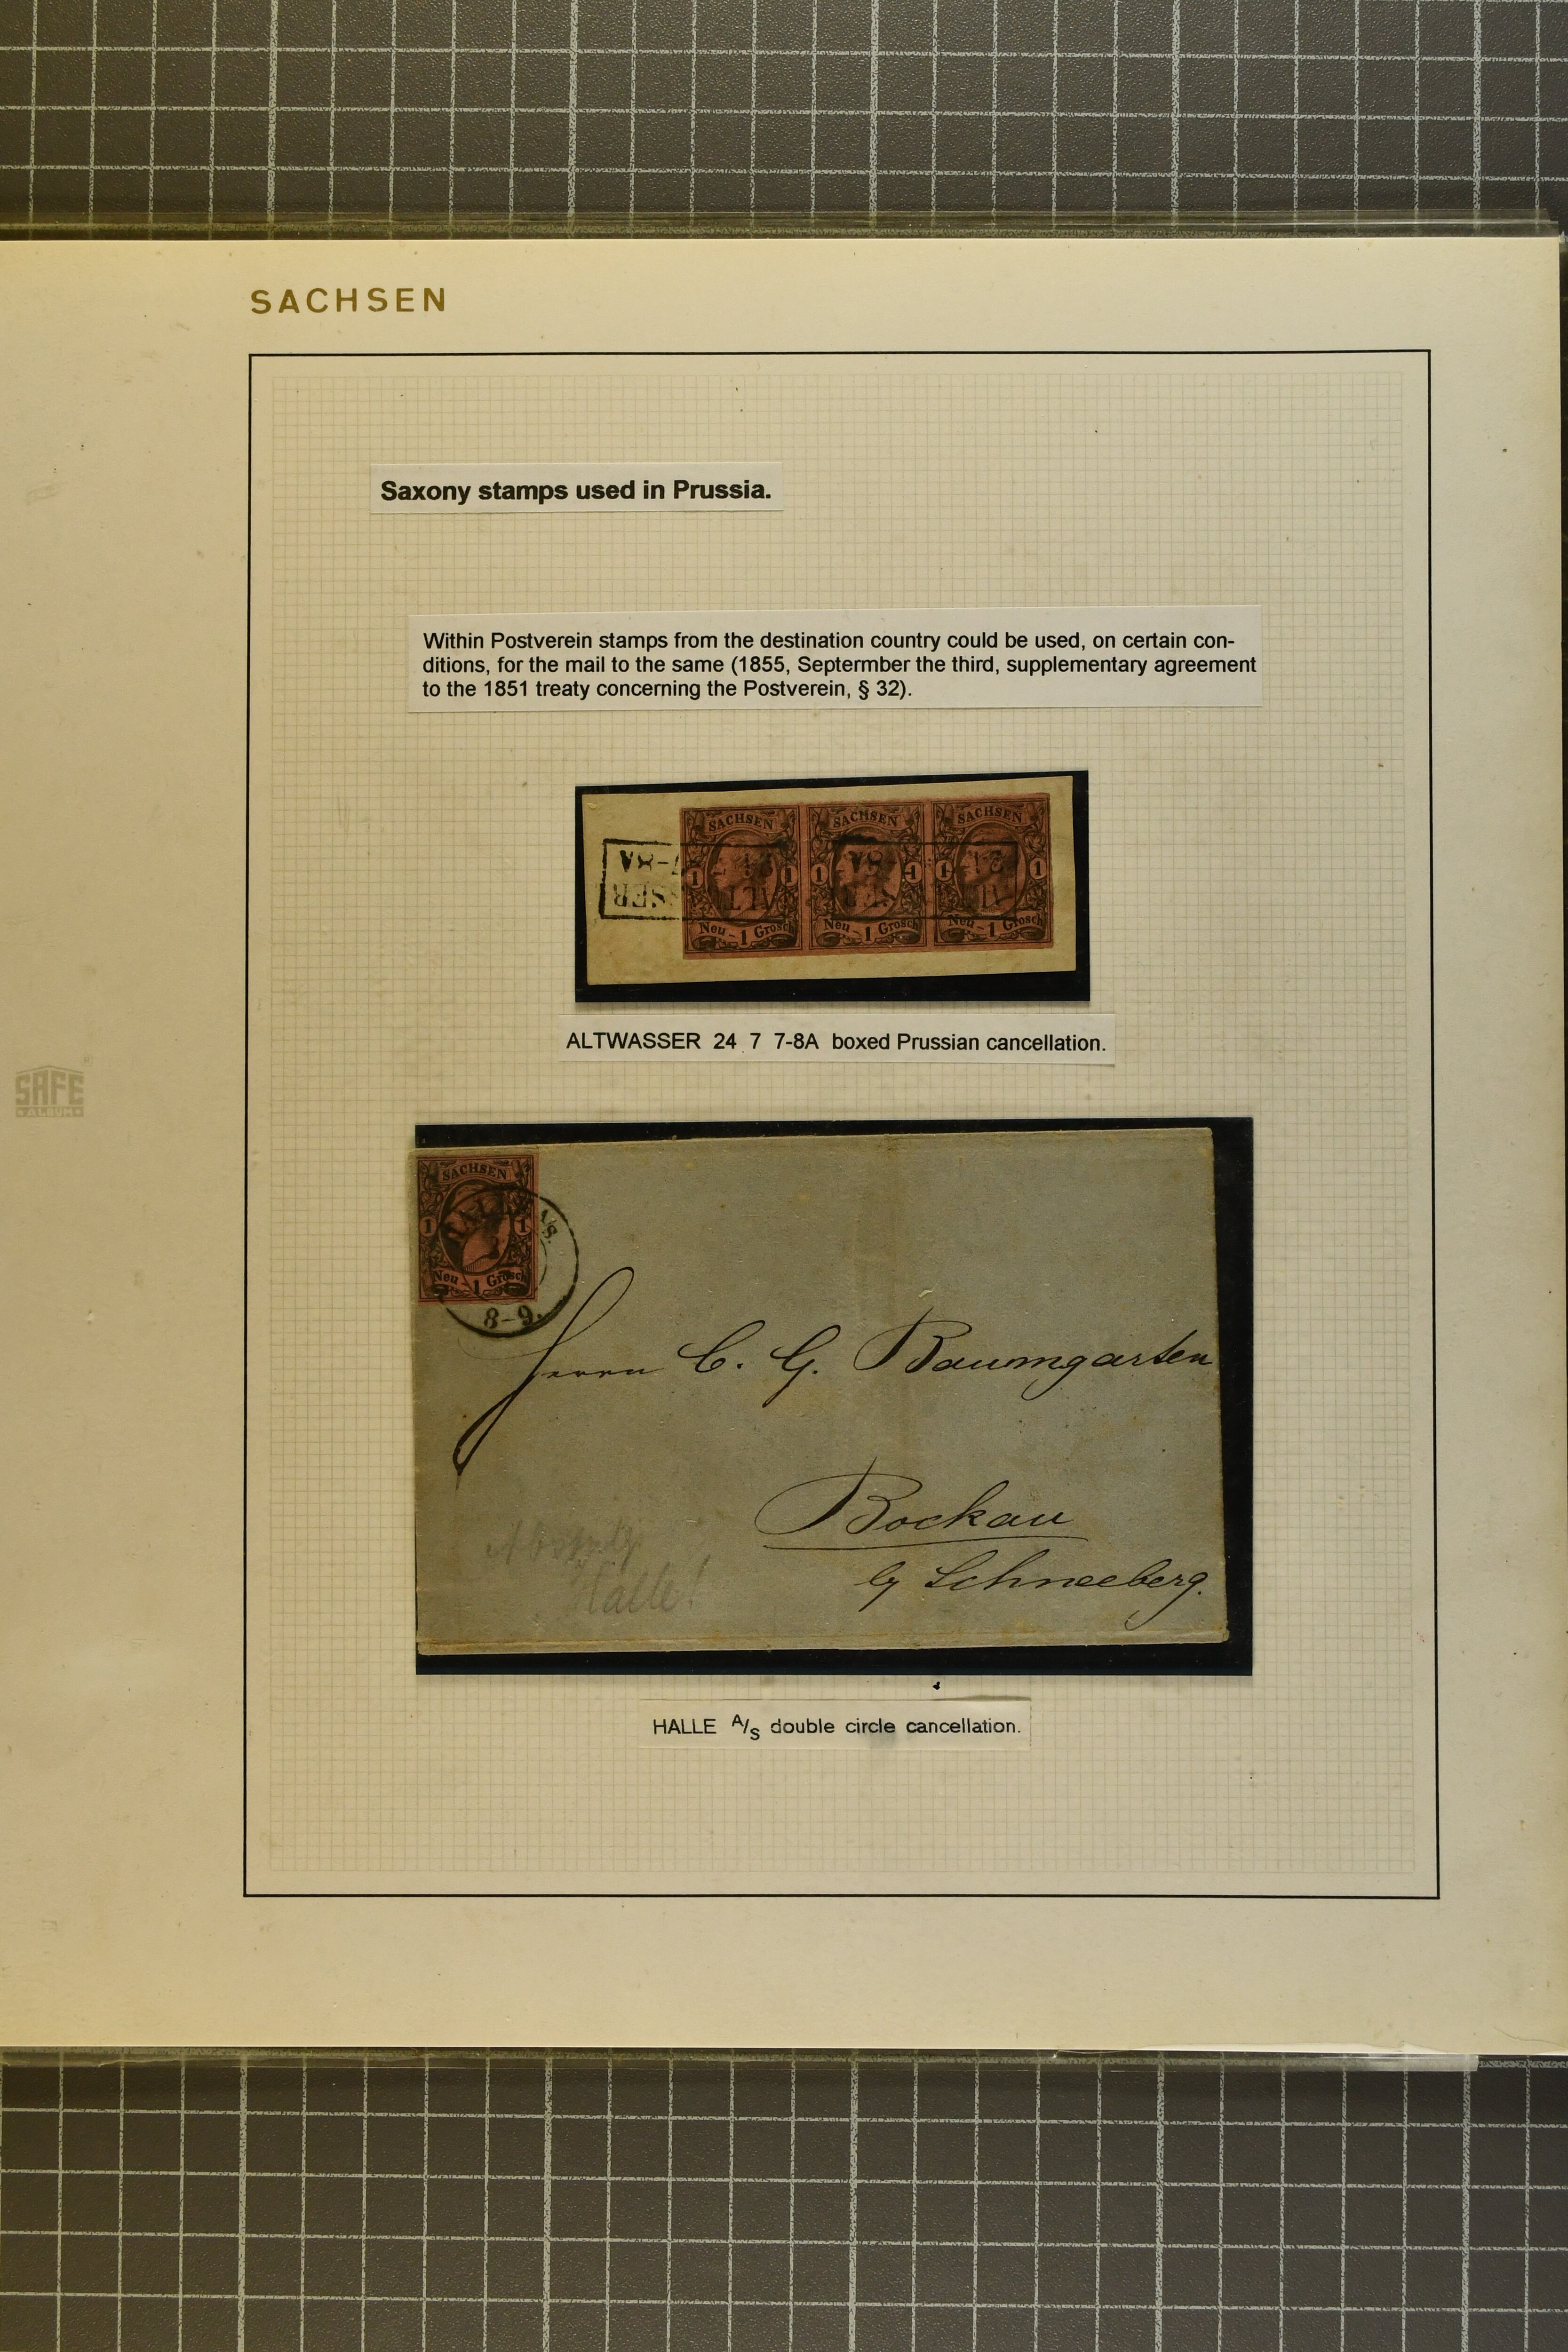 SACHSEN
Saxony stamps used in Prussia.
Within Postverein stamps from the destination country could be used, on certain con-
ditions, for the mail to the same (1855, Septermber the third, supplementary agreement
to the 1851 treaty concerning the Postverein, § 32).
SACHSEN SACHSEN SACHSEN
24 7 7-8A 8A 24
1 1 1 1 1 1
ALT SSER SER AL
Neu - 1 Grosch Neu - 1 Grosch Neu - 1 Grosch
ALTWASSER 24 7 7-8A boxed Prussian cancellation.
SAFE
ALBUM
SACHSEN
HALLE A/S.
1 1
Neu - 1 Grosch
8-9.
Herrn C. G. Baumgarten
Bockau
by Schneeberg.
Halle!
HALLE A/S double circle cancellation.